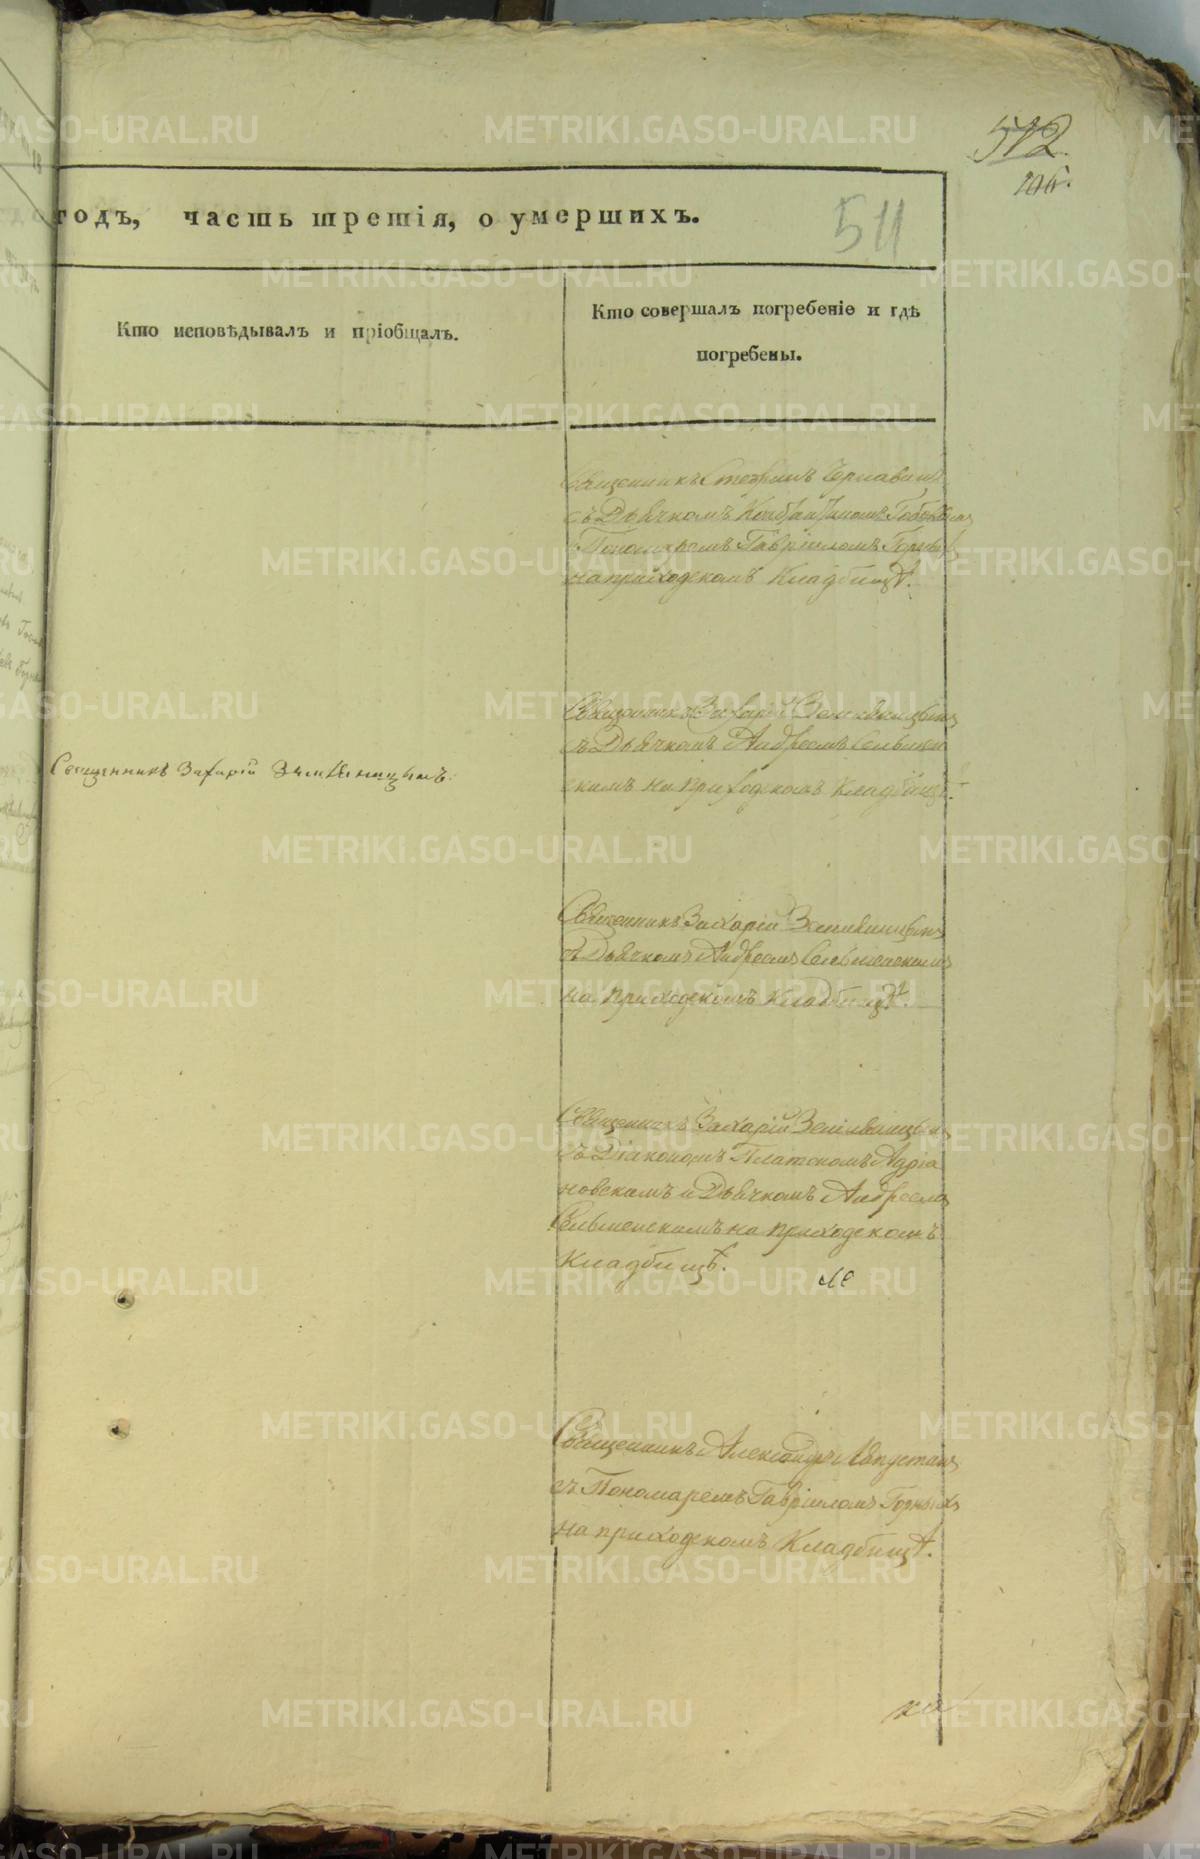 512
106.
годъ, часть третія, о умершихъ.
511
Кто исповѣдывалъ и пріобщалъ.
Кто совершалъ погребеніе и гдѣ
погребены.
Священникъ Стефанъ
съ Дьячкомъ
Пономаремъ Гавріиломъ Горныхъ
на приходскомъ Кладбищѣ.
Священникъ Захарій Земляницынъ
съ Дьячкомъ Андреемъ Сельмен
скимъ на приходскомъ Кладбищѣ.
Священникъ Захарій Земляницынъ.
Священникъ Захарій Земляницынъ
съ Дьячкомъ Андреемъ Сельменскимъ
на приходскомъ Кладбищѣ.
Священникъ Захарій Земляницынъ
съ Діакономъ Платономъ Адріа
новскимъ и Дьячкомъ Андреемъ
Сельменскимъ на приходскомъ
Кладбищѣ.
Священникъ Александръ
съ Пономаремъ Гавріиломъ Горныхъ
на приходскомъ Кладбищѣ.
METRIKI.GASO-URAL.RU